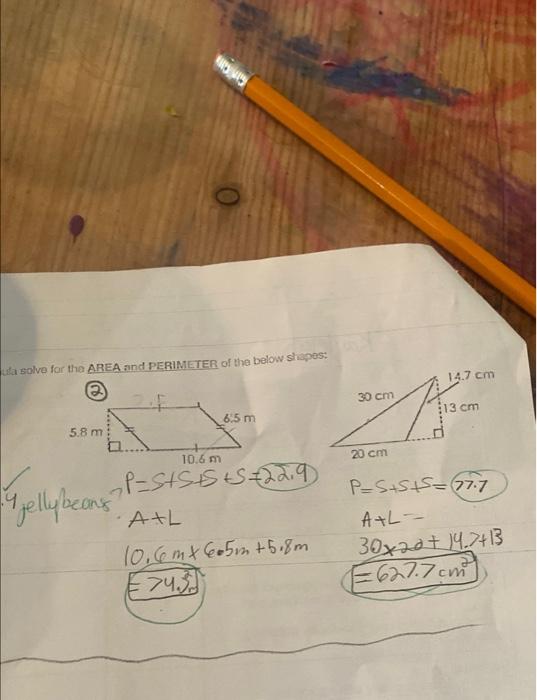 ula solve for the AREA and PERIMETER of the below shapes:
2
5.8 m
6.5 m
10.6 m
30 cm
14.7 cm
13 cm
20 cm
jellybeans?
P=S+S+S+S=22.9
A+L
10.6m x 6.5m + 5.8m
=74.3
P=S+S+S=77.7
A+L=
30x20+14.7+13
=627.7cm²